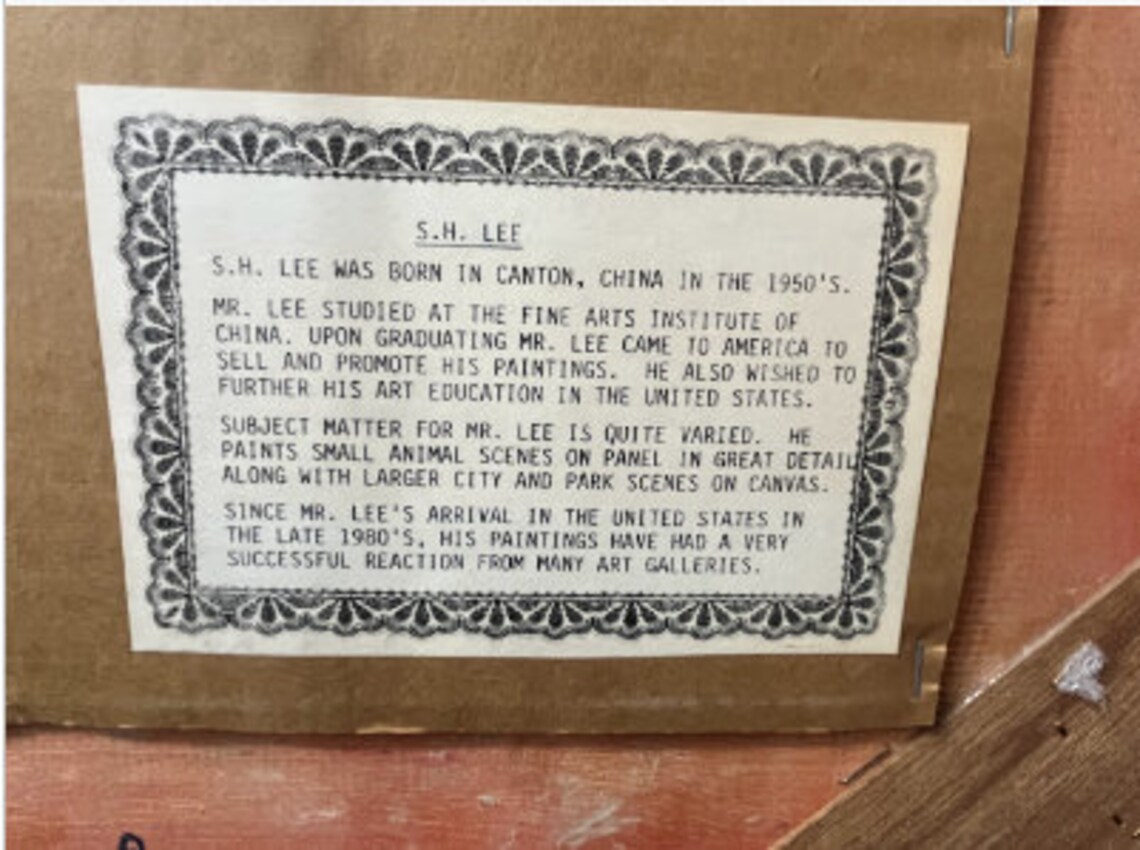 S.H. LEE
S.H. LEE WAS BORN IN CANTON, CHINA IN THE 1950'S.
MR. LEE STUDIED AT THE FINE ARTS INSTITUTE OF
CHINA. UPON GRADUATING MR. LEE CAME TO AMERICA TO
SELL AND PROMOTE HIS PAINTINGS. HE ALSO WISHED TO
FURTHER HIS ART EDUCATION IN THE UNITED STATES.
SUBJECT MATTER FOR MR. LEE IS QUITE VARIED. HE
PAINTS SMALL ANIMAL SCENES ON PANEL IN GREAT DETAIL
ALONG WITH LARGER CITY AND PARK SCENES ON CANVAS.
SINCE MR. LEE'S ARRIVAL IN THE UNITED STATES IN
THE LATE 1980'S, HIS PAINTINGS HAVE HAD A VERY
SUCCESSFUL REACTION FROM MANY ART GALLERIES.